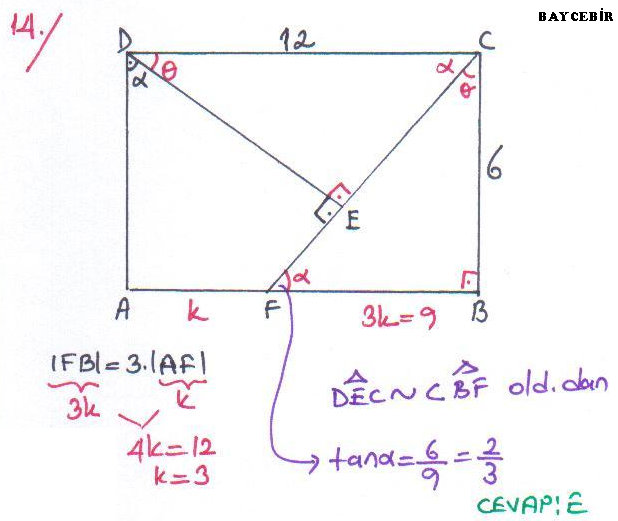 BAYCEBİR
14.
D 12 C
α θ α θ
6
E
α
A k F 3k=9 B
|FB|=3.|AF|
3k k
4k=12
k=3
DEC ~ CBF old.dan
tanα=6/9=2/3
CEVAP:E